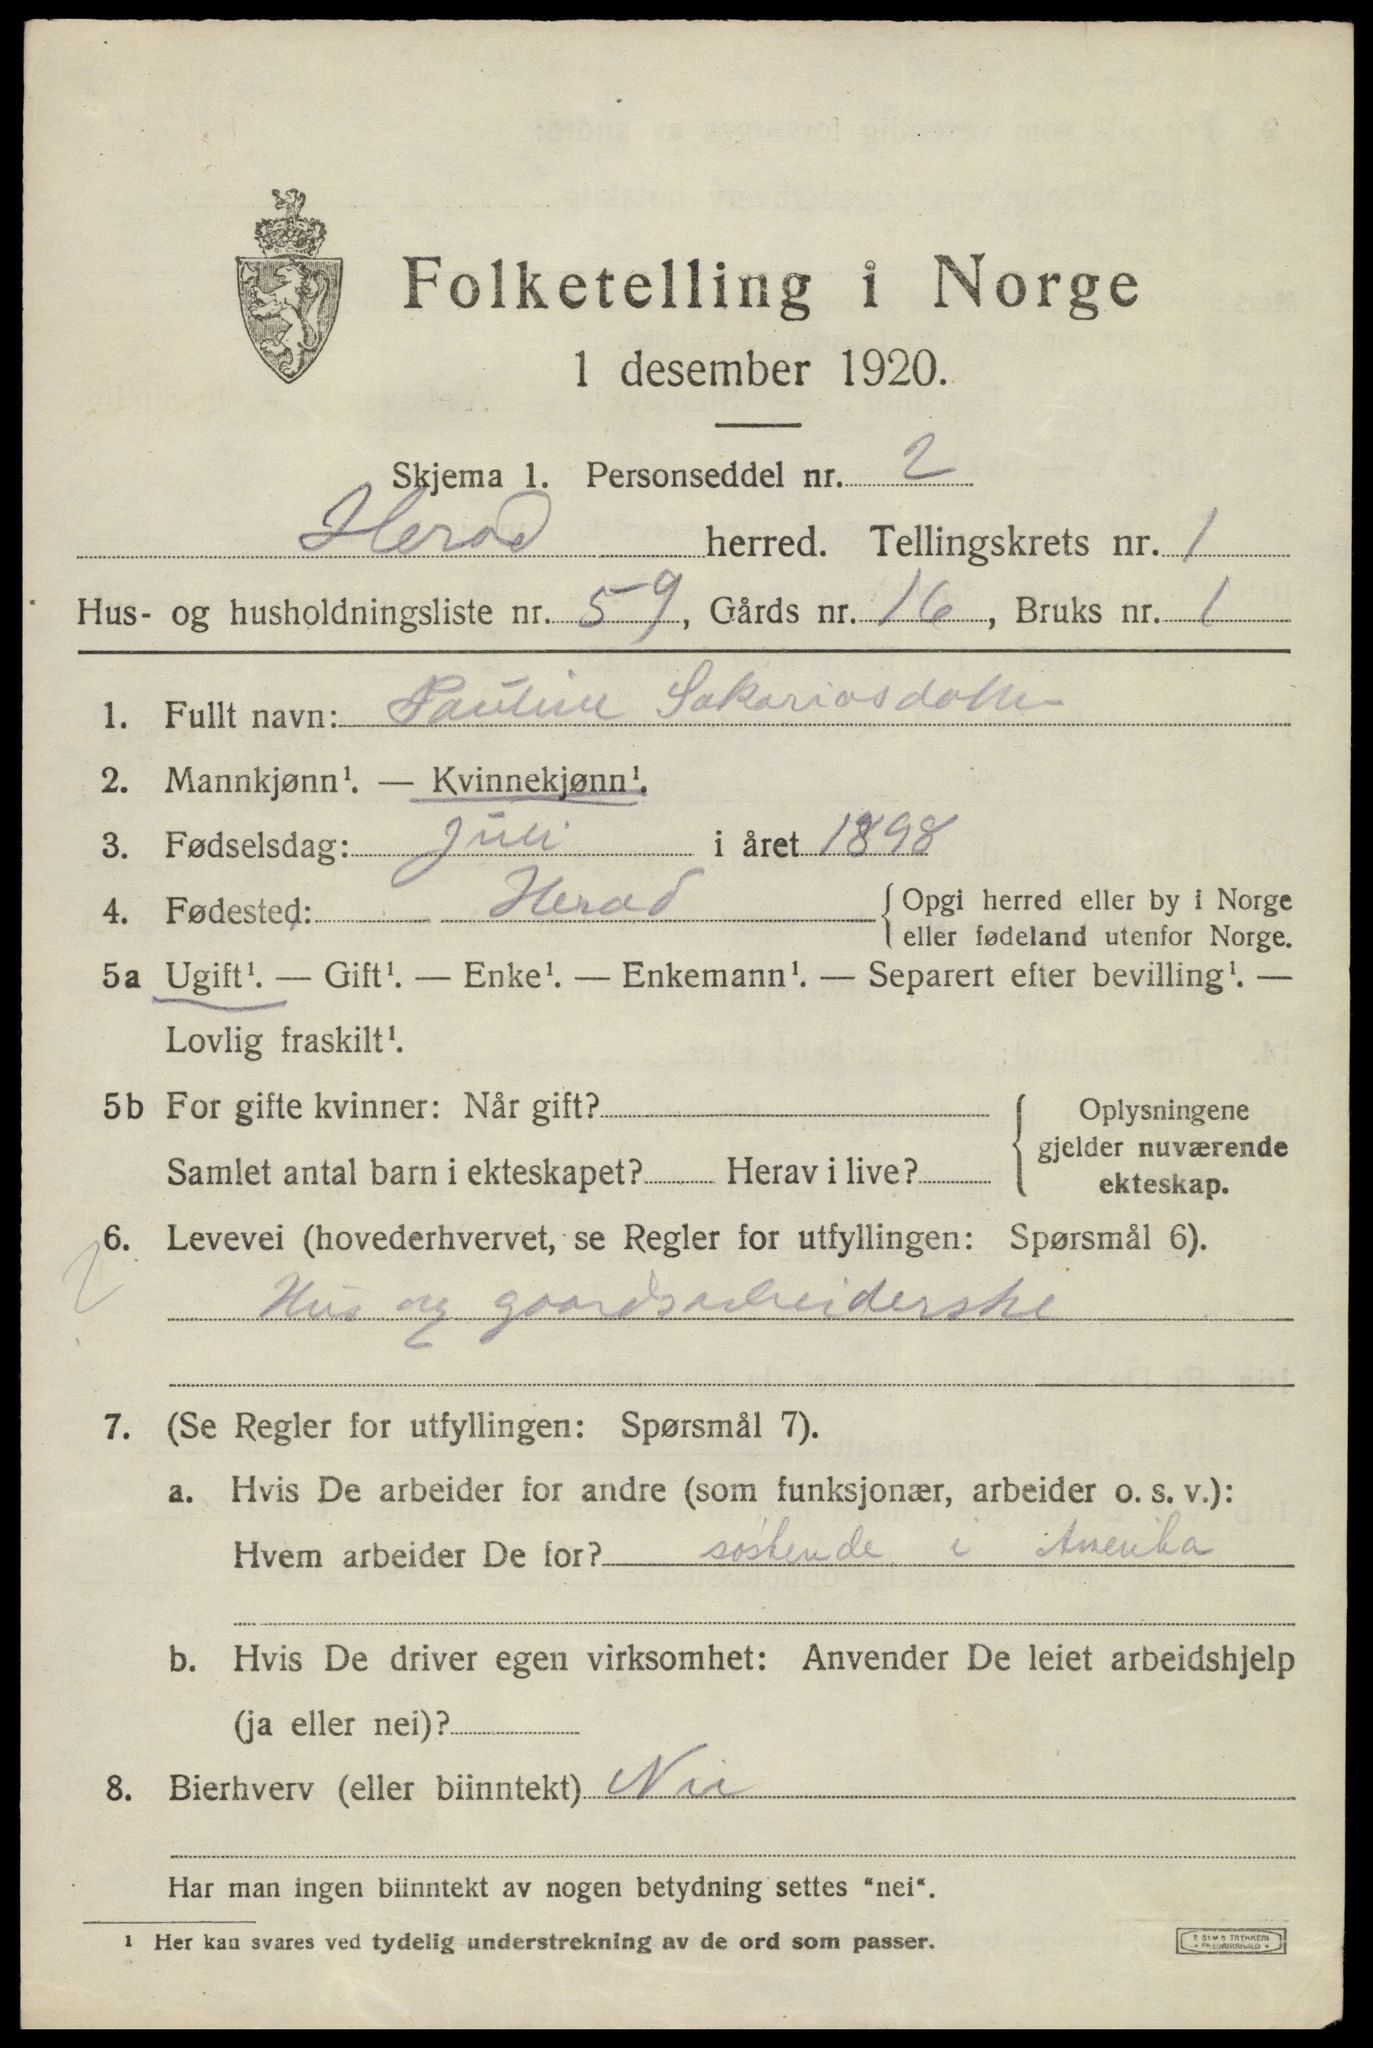 Folketelling i Norge
1 desember 1920.
Skjema 1. Personseddel nr. 2
Herad herred. Tellingskrets nr. 1
Hus- og husholdningsliste nr. 59, Gårds nr. 16, Bruks nr. 1
1. Fullt navn: Pauline Sakariasdatter
2. Mannkjønn¹. — Kvinnekjønn¹.
3. Fødselsdag: Juli i året 1898
4. Fødested: Herad { Opgi herred eller by i Norge
eller fødeland utenfor Norge.
5a Ugift¹. — Gift¹. — Enke¹. — Enkemann¹. — Separert efter bevilling¹. —
Lovlig fraskilt¹.
5b For gifte kvinner: Når gift?
Samlet antal barn i ekteskapet? Herav i live?
{ Oplysningene
gjelder nuværende
ekteskap.
6. Levevei (hovederhvervet, se Regler for utfyllingen: Spørsmål 6).
Hus og gaardsarbeiderske
7. (Se Regler for utfyllingen: Spørsmål 7).
a. Hvis De arbeider for andre (som funksjonær, arbeider o. s. v.):
Hvem arbeider De for? søskende i Amerika
b. Hvis De driver egen virksomhet: Anvender De leiet arbeidshjelp
(ja eller nei)?
8. Bierhverv (eller biinntekt) Nei
Har man ingen biinntekt av nogen betydning settes "nei".
¹ Her kan svares ved tydelig understrekning av de ord som passer.